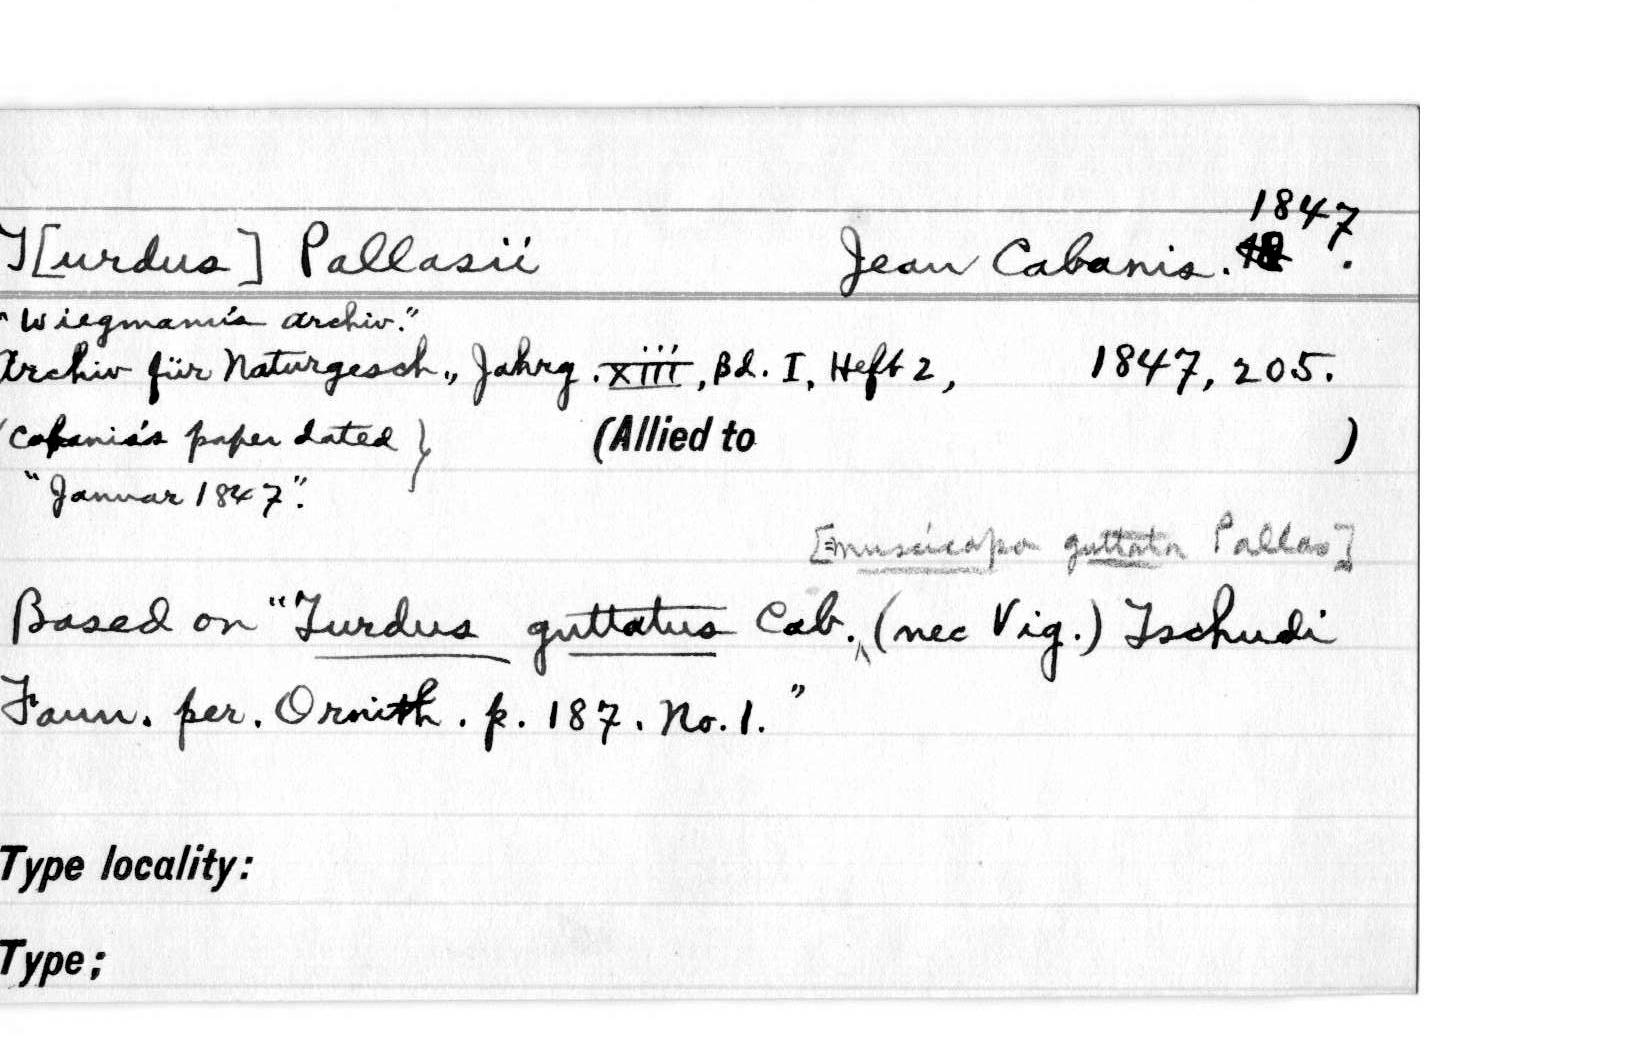 T[urdus] Pallasii Jean Cabanis. 1847.
"Wiegmann's archiv."
Archiv für Naturgesch., Jahrg. XIII, Bd. I, Heft 2, 1847, 205.
(Cabanis's paper dated } (Allied to )
"Januar 1847".
[=muscicapa guttata Pallas]
Based on "Turdus guttatus Cab. (nec Vig.) Tschudi
Faun. per. Ornith. p. 187. No. 1."
Type locality:
Type;